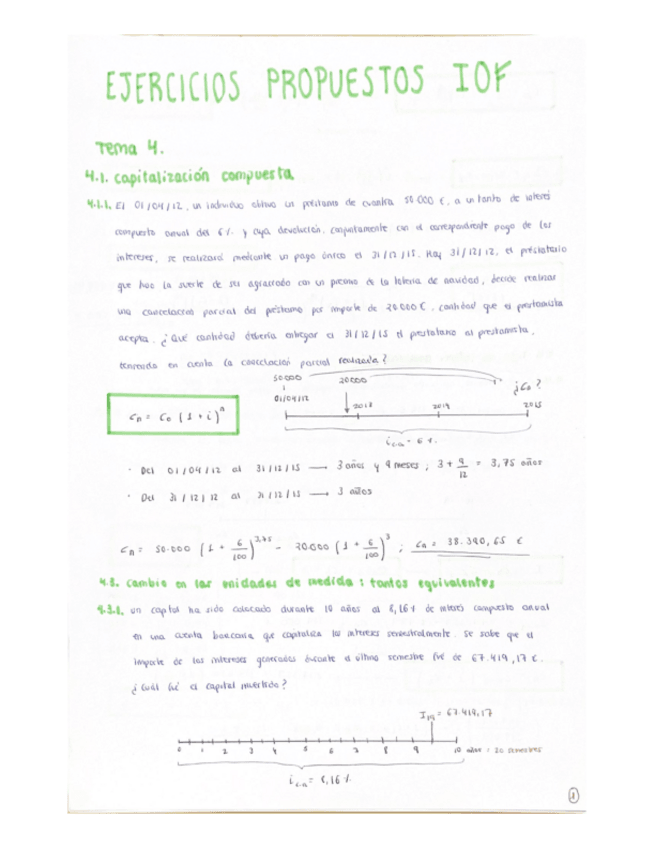 EJERCICIOS PROPUESTOS IOF
Tema 4.
4.1. Capitalización compuesta
4.1.1. El 01/04/12, un individuo obtuvo un préstamo de cuantía 50.000 €, a un tanto de interés
compuesto anual del 6% y cuya devolución, conjuntamente con el correspondiente pago de los
intereses, se realizará mediante un pago único el 31/12/15. Hoy 31/12/12, el prestatario
que has la suerte de ser agraciado con un premio de la lotería de navidad, decide realizar
una cancelación parcial del préstamo por importe de 20.000 €, cantidad que el prestamista
acepta. ¿Qué cantidad debería entregar el 31/12/15 el prestatario al prestamista,
teniendo en cuenta la cancelación parcial realizada?
50.000 20.000 ¿Cn?
01/04/12 2013 2014 2015
Cn = Co (1 + i)^n
i c.a = 6 %.
· Del 01/04/12 al 31/12/15 → 3 años y 9 meses ; 3 + 9/12 = 3,75 años
· Del 31/12/12 al 31/12/15 → 3 años
Cn = 50.000 (1 + 6/100)^3,75 - 20.000 (1 + 6/100)^3 ; Cn = 38.390,65 €
4.3. Cambio en las unidades de medida : tantos equivalentes
4.3.1. Un capital ha sido colocado durante 10 años al 8,16% de interés compuesto anual
en una cuenta bancaria que capitaliza los intereses semestralmente. Se sabe que el
importe de los intereses generados durante el último semestre fue de 67.419,17 €.
¿Cuál fue el capital invertido?
I19 = 67.419,17
0 1 2 3 4 5 6 7 8 9 10 años : 20 semestres
i c.a = 8,16 %.
1